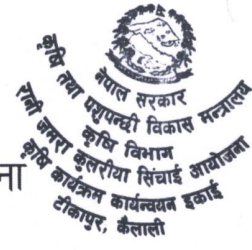 नेपाल सरकार
कृषि तथा पशुपन्छी विकास मन्त्रालय
कृषि विभाग
रानी जमरा कुलरीया सिंचाई आयोजना
कृषि कार्यक्रम कार्यन्वयन इकाई
टीकापुर, कैलाली
ना